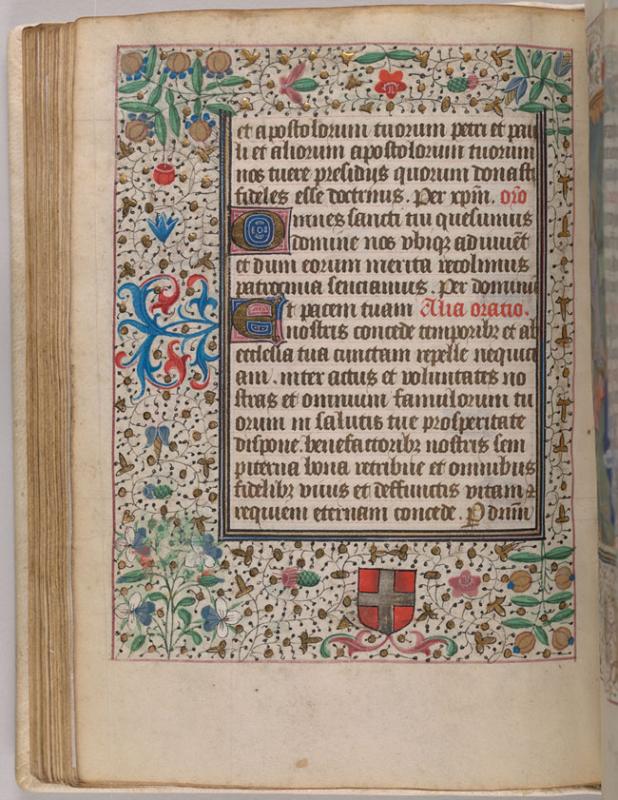 et apostolorum tuorum petri et pau
li et aliorum apostolorum tuorum
nos tuere presidus quorum donasti
fideles esse doctrinis. Per xp̄m. or̄o
Omnes sancti tui quesumus
domine nos vbiq̄ adiuuēt
et dum eorum merita recolimus
patrocinia senciamus. Per dominū
Et pacem tuam Alia oratio.
nostris concede temporibꝫ et ab
ecclesia tua cunctam repelle nequici
am. inter actus et voluntates no
stras et omnium famulorum tu
orum in salutis tue prosperitate
dispone. benefactoribꝫ nostris sem
piterna bona retribue et omnibus
fidelibꝫ viuis et deffunctis vitam ⁊
requiem eternam concede. P dn̄m